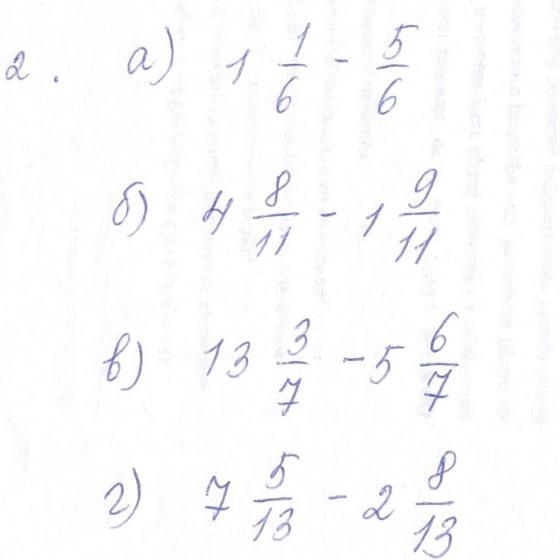 2. а) 1 1/6 - 5/6
б) 4 8/11 - 1 9/11
в) 13 3/7 - 5 6/7
г) 7 5/13 - 2 8/13